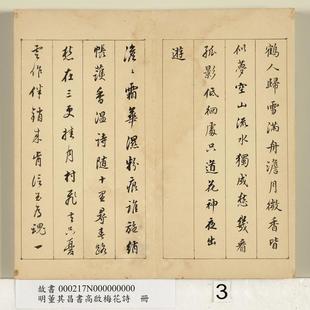 鶴人歸雪滿舟澹月微香皆
似夢空山流水獨成愁幾看
孤影低徊處只道花神夜出
遊
澹澹霜華濕粉痕誰施綃
帳護香溫詩隨十里尋春路
愁在三更挂月村飛去只憂
雲作伴銷來肯信玉為魂一
故書 000217N000000000
明董其昌書高啟梅花詩 冊
3